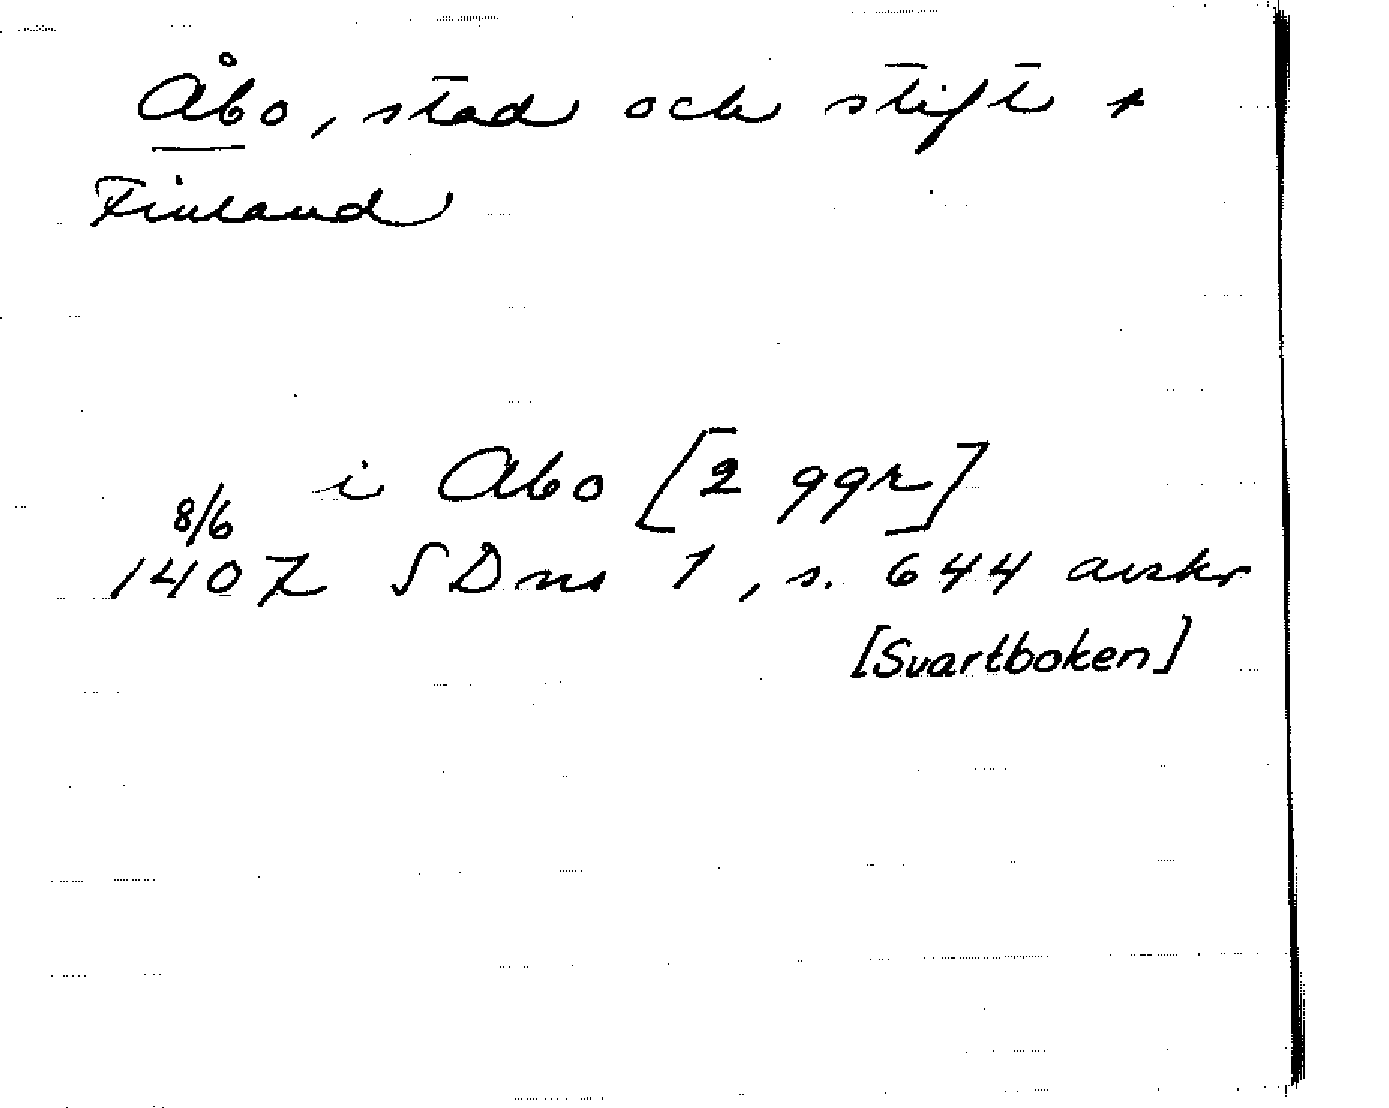 Åbo, stad och stift *
Finland
i Abo [2 ggr]
8/6
1407 SDns 1, s. 644 avskr
[Svartboken]